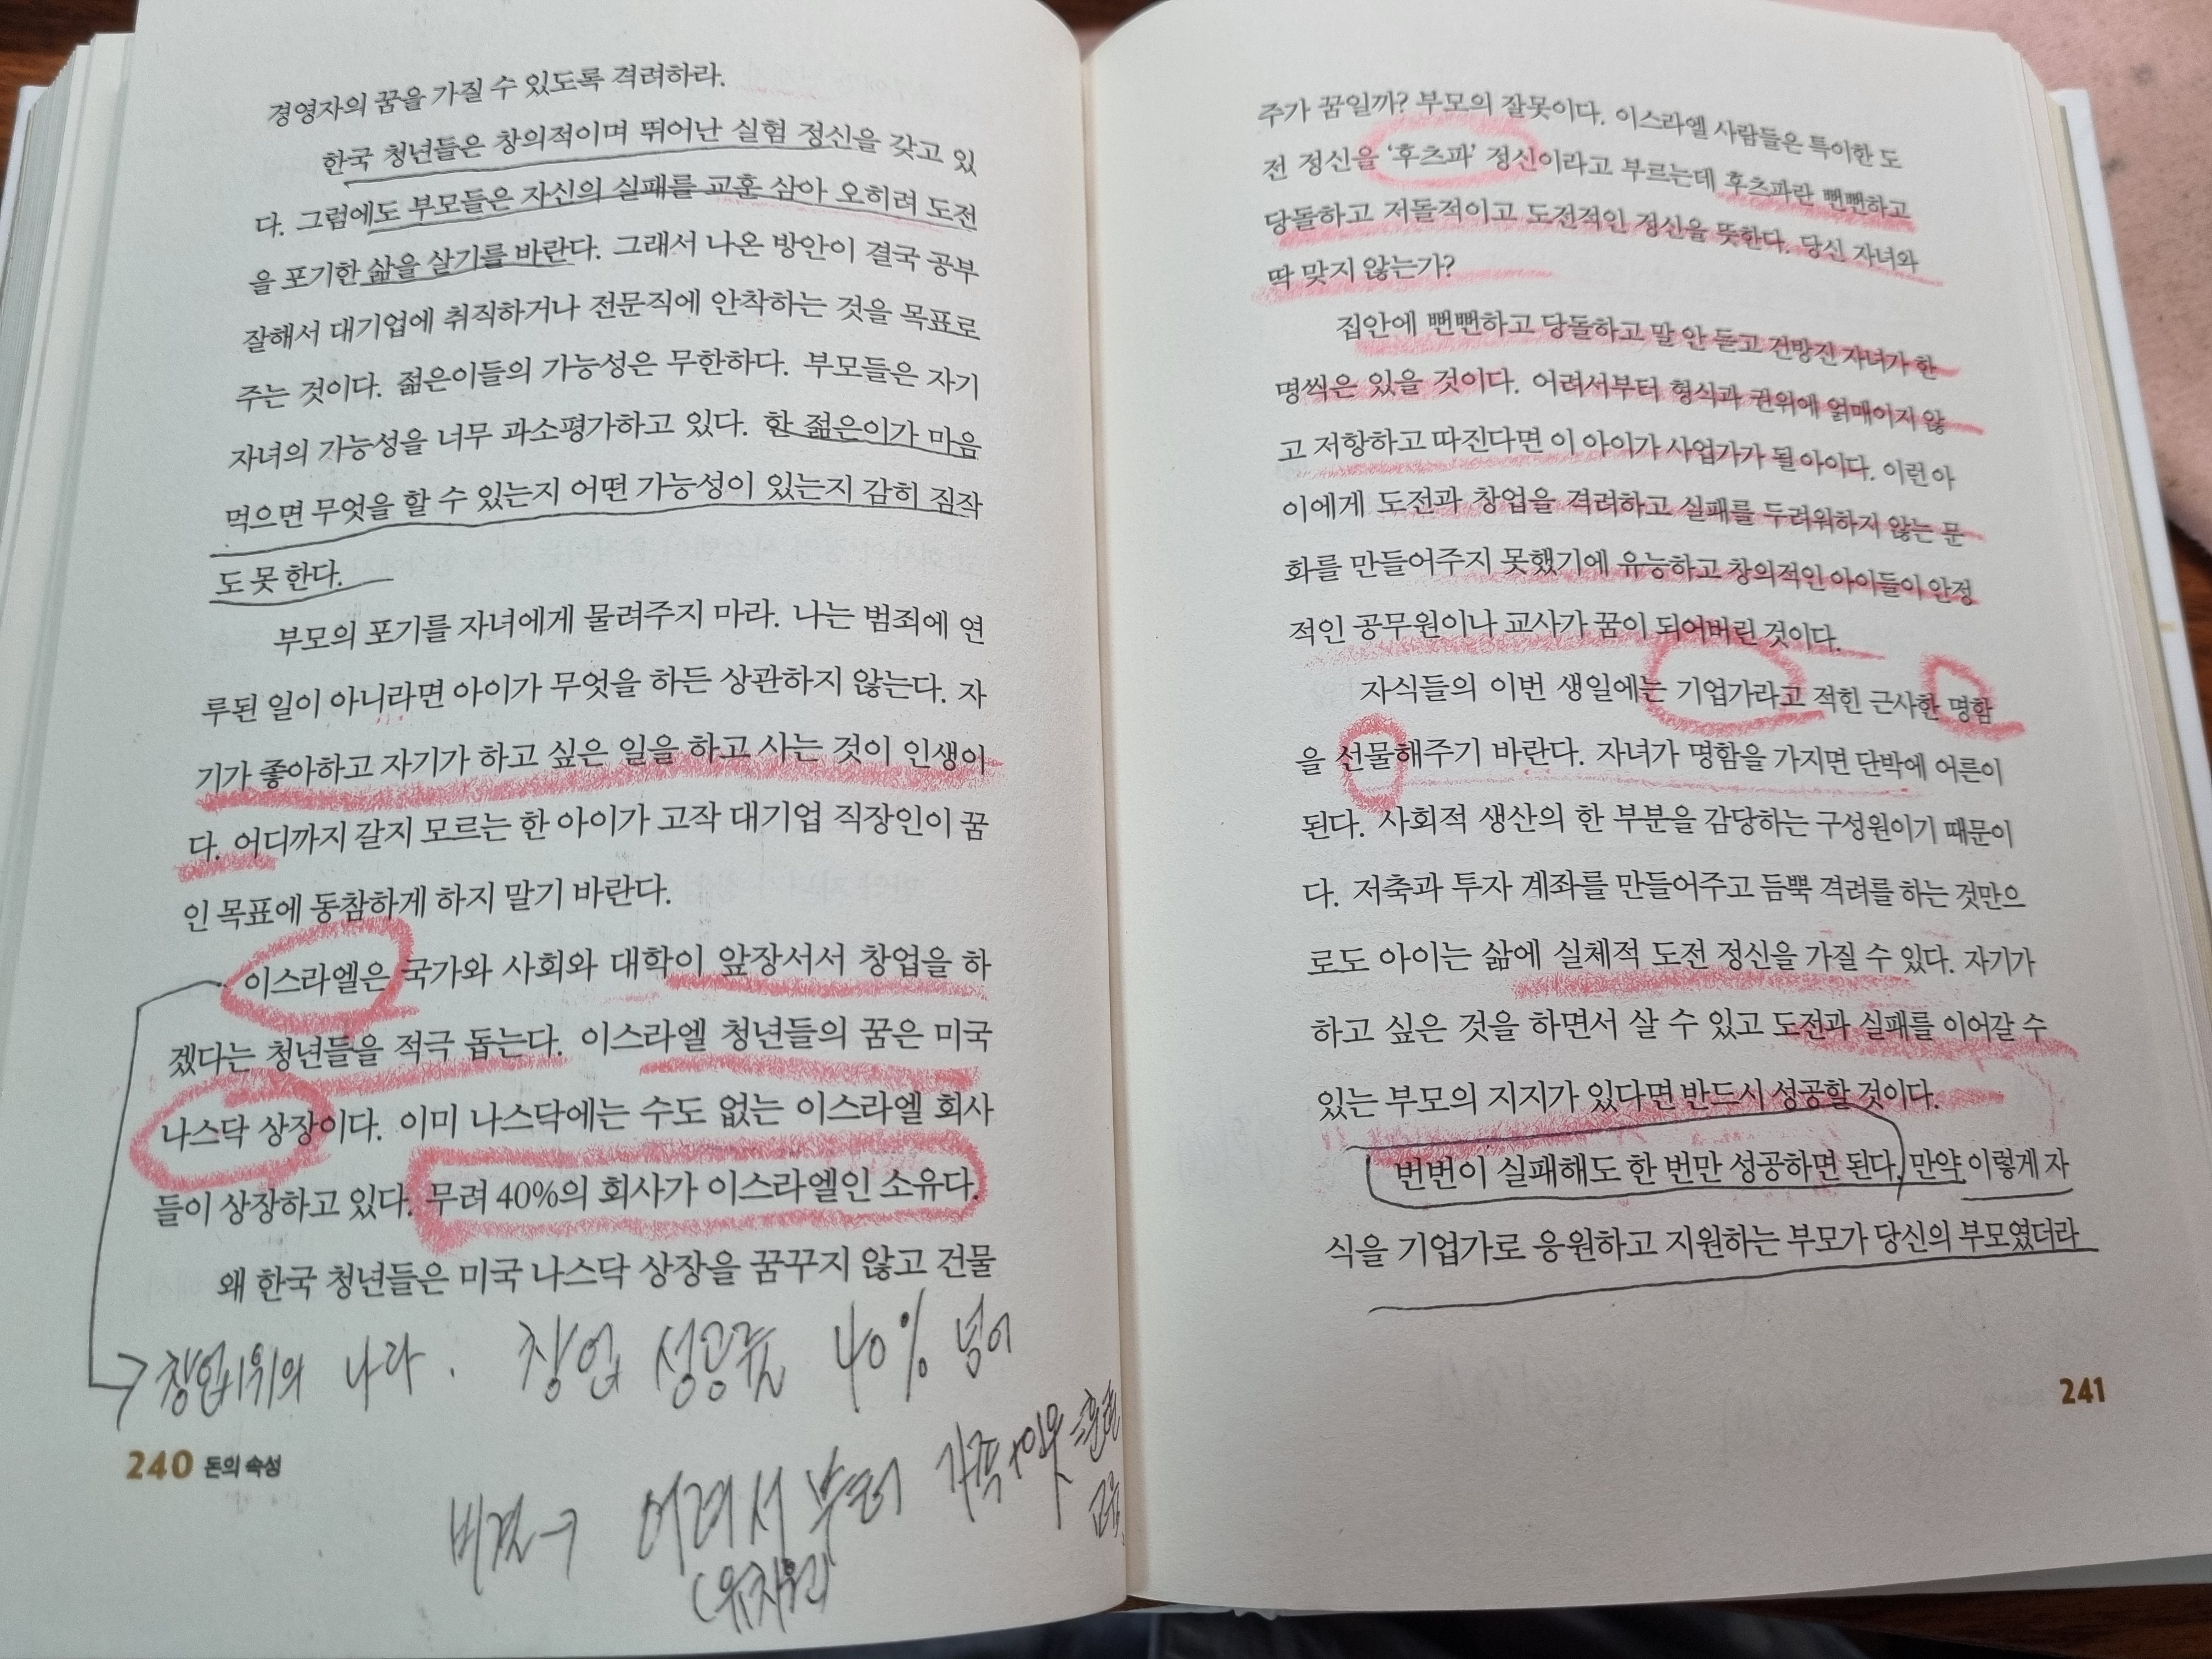 경영자의 꿈을 가질 수 있도록 격려하라.
한국 청년들은 창의적이며 뛰어난 실험 정신을 갖고 있
다. 그럼에도 부모들은 자신의 실패를 교훈 삼아 오히려 도전
을 포기한 삶을 살기를 바란다. 그래서 나온 방안이 결국 공부
잘해서 대기업에 취직하거나 전문직에 안착하는 것을 목표로
주는 것이다. 젊은이들의 가능성은 무한하다. 부모들은 자기
자녀의 가능성을 너무 과소평가하고 있다. 한 젊은이가 마음
먹으면 무엇을 할 수 있는지 어떤 가능성이 있는지 감히 짐작
도 못 한다.
부모의 포기를 자녀에게 물려주지 마라. 나는 범죄에 연
루된 일이 아니라면 아이가 무엇을 하든 상관하지 않는다. 자
기가 좋아하고 자기가 하고 싶은 일을 하고 사는 것이 인생이
다. 어디까지 갈지 모르는 한 아이가 고작 대기업 직장인이 꿈
인 목표에 동참하게 하지 말기 바란다.
이스라엘은 국가와 사회와 대학이 앞장서서 창업을 하
겠다는 청년들을 적극 돕는다. 이스라엘 청년들의 꿈은 미국
나스닥 상장이다. 이미 나스닥에는 수도 없는 이스라엘 회사
들이 상장하고 있다. 무려 40%의 회사가 이스라엘인 소유다.
왜 한국 청년들은 미국 나스닥 상장을 꿈꾸지 않고 건물
창업1위의 나라. 창업 성공률 40% 넘어
240 돈의 속성
비결→ 어려서부터 가족+이웃
(유치원)
주가 꿈일까? 부모의 잘못이다. 이스라엘 사람들은 특이한 도
전 정신을 '후츠파' 정신이라고 부르는데 후츠파란 뻔뻔하고
당돌하고 저돌적이고 도전적인 정신을 뜻한다. 당신 자녀와
딱 맞지 않는가?
집안에 뻔뻔하고 당돌하고 말 안 듣고 건방진 자녀가 한
명씩은 있을 것이다. 어려서부터 형식과 권위에 얽매이지 않
고 저항하고 따진다면 이 아이가 사업가가 될 아이다. 이런 아
이에게 도전과 창업을 격려하고 실패를 두려워하지 않는 문
화를 만들어주지 못했기에 유능하고 창의적인 아이들이 안정
적인 공무원이나 교사가 꿈이 되어버린 것이다.
자식들의 이번 생일에는 기업가라고 적힌 근사한 명함
을 선물해주기 바란다. 자녀가 명함을 가지면 단박에 어른이
된다. 사회적 생산의 한 부분을 감당하는 구성원이기 때문이
다. 저축과 투자 계좌를 만들어주고 듬뿍 격려를 하는 것만으
로도 아이는 삶에 실체적 도전 정신을 가질 수 있다. 자기가
하고 싶은 것을 하면서 살 수 있고 도전과 실패를 이어갈 수
있는 부모의 지지가 있다면 반드시 성공할 것이다.
번번이 실패해도 한 번만 성공하면 된다. 만약 이렇게 자
식을 기업가로 응원하고 지원하는 부모가 당신의 부모였더라
241